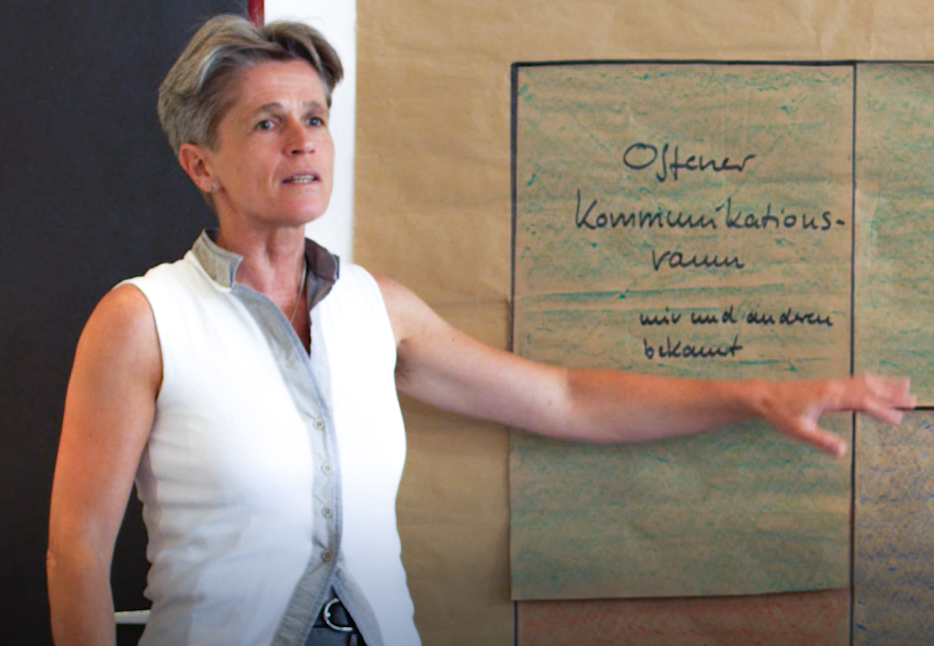 Offener
Kommunikations-
raum
mir und anderen
bekannt